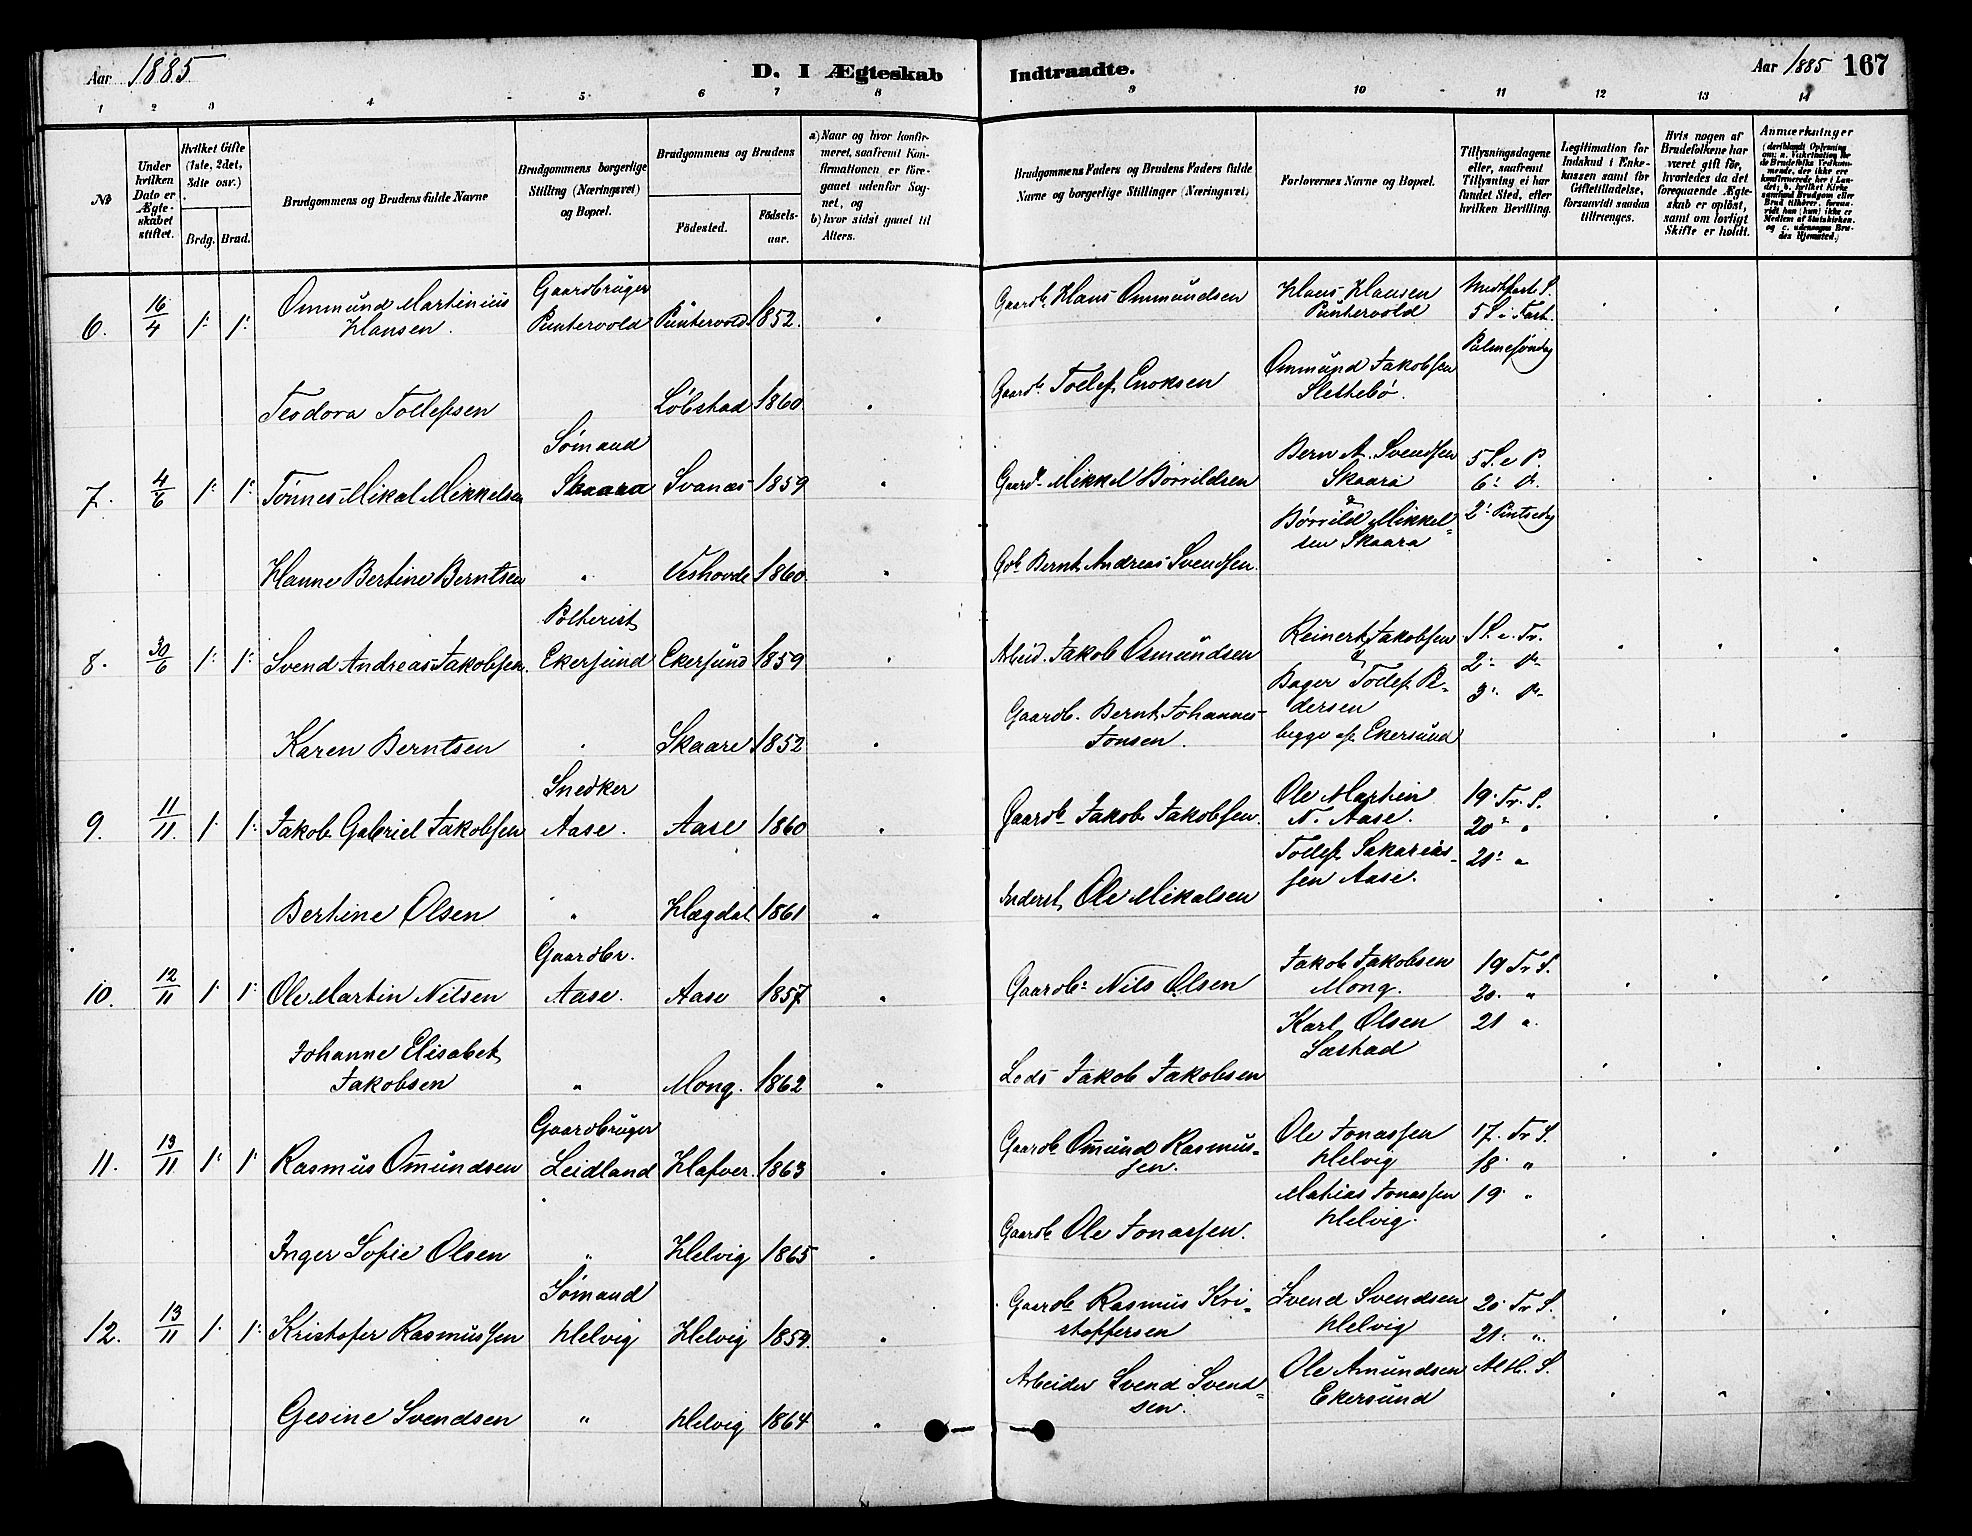 Aar 1885
D. I Ægteskab
Indtraadte.
Aar 1885 167
1 2 3 4 5 6 7 8 9 10 11 12 13 14
No
Under hvilken Dato er Ægteskabet stiftet.
Hvilket Gifte (1ste, 2det, 3die osv.)
Brdg. Brud.
Brudgommens og Brudens fulde Navne
Brudgommens borgerlige Stilling (Næringsvei) og Bopæl.
Brudgommens og Brudens
Fødested. Fødselsaar.
a) Naar og hvor konfirmeret, saafremt Konfirmationen er foregaaet udenfor Sognet, og
b) hvor sidst gaaet til Alters.
Brudgommens Faders og Brudens Faders fulde Navne og borgerlige Stillinger (Næringsvei)
Forlovernes Navne og Bopæl.
Tillysningsdagene eller, saafremt Tillysning ei har fundet Sted, efter hvilken Bevilling.
Legitimation for Indskud i Enkekassen samt for Giftetilladelse, forsaavidt saadan tiltrænges.
Hvis nogen af Brudefolkene har været gift før, hvorledes da det foregaaende Ægteskab er opløst, samt om lovligt Skifte er holdt.
Anmærkninger
6. 16/4 1: 1: Ommund Martinius Hansen. Gaardbruger Puntervold Puntervold 1852. " Gaardb. Hans Ommundsen Hans Hansen Puntervold Midtfast S. 5 S. i Fast. Palmesøndag
Teodora Tollefsen Løbstad 1860 " Gaardb. Tollef Enoksen Ommund Jakobsen Slettebø.
7. 4/6 1: 1: Tønnes Mikal Mikkelsen Sømand Skaara Svanæs 1859 " Gaardb. Mikkel Børvildsen Bern A. Svendsen Skaara 5 S. e P. 6: d. 2: Pintsedag
Hanne Bertine Berntsen " Veshovde 1860 " Gb. Bernt Andreas Svendsen. Børvild Mikkelsen Skaara
8. 30/6 1: 1: Svend Andreas Jakobsen Poltherist Ekersund Ekersund 1859 " Arbeid. Jakob Osmundsen Reinert Jakobsen 1 S. e. Tr. 2: d. 3: d.
Karen Berntsen " Skaare 1852 " Gaardb. Bernt Johannes Jonsen. Bager Tollef Pedersen begge af Ekersund
9. 11/11. 1: 1: Jakob Gabriel Jakobsen Snedker Aase. Aase 1860 " Gaardb. Jakob Jakobsen. Ole Martin N. Aase. 19. Tr. S. 20: " 21: "
Bertine Olsen. " Hægdal 1861 " Inderst Ole Mikalsen Tollef Sakariassen Aase.
10. 12/11 1: 1: Ole Martin Nilsen Gaardbr. Aase. Aase 1857 " Gaardb. Nils Olsen Jakob Jakobsen Mong. 19 Tr S. 20. " 21 "
Johanne Elisabet Jakobsen " Mong. 1862 " Lods Jakob Jakobsen Karl Olsen Sæstad
11. 13/11 1: 1: Rasmus Omundsen Gaardbruger Leidland Hafver. 1863 " Gaardb. Omund Rasmussen. Ole Jonassen Helvig 17. Tr S. 18. " 19. "
Inger Sofie Olsen " Helvig 1865 " Gaardb. Ole Jonassen. Matias Jonassen Helvig.
12. 13/11 1: 1: Kristofer Rasmussen Sømand Helvig Helvig 1859. " Gaardb. Rasmus Kristoffersen Svend Svendsen Helvig 20. Tr S. 21. "
Gesine Svendsen " Helvig 1864 " Arbeider Svend Svendsen. Ole Amundsen Ekersund